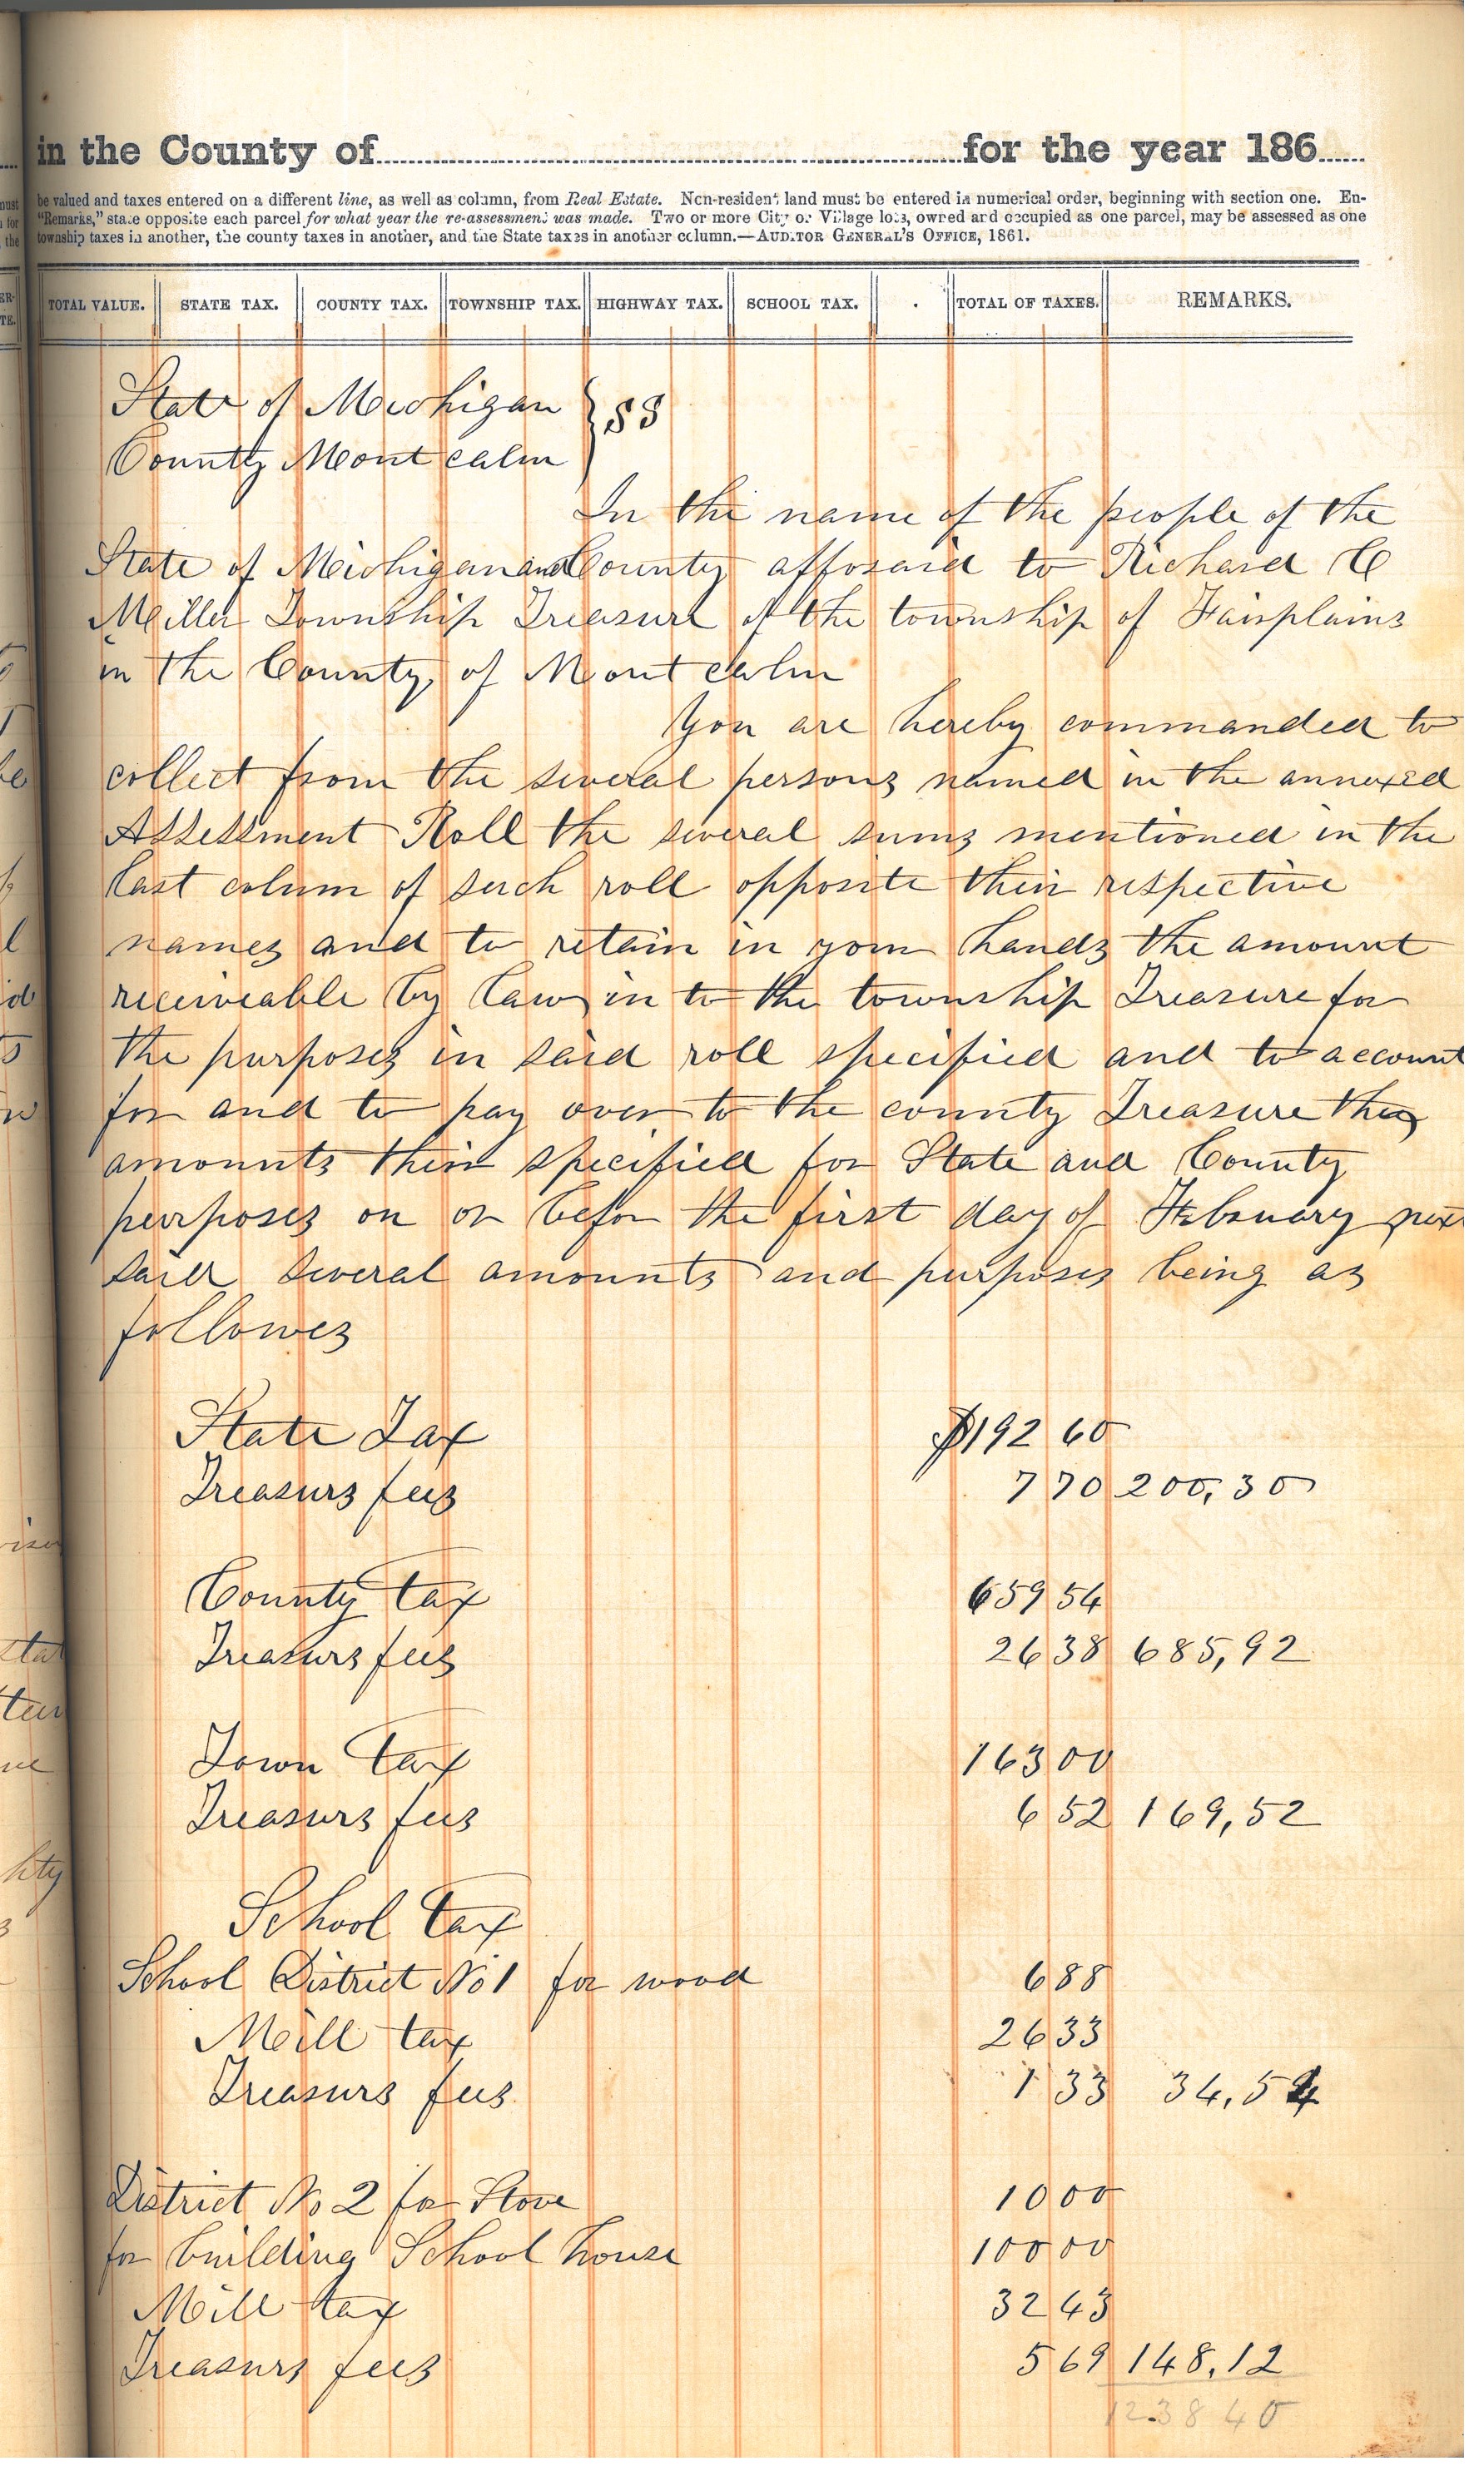 in the County of for the year 186
be valued and taxes entered on a different line, as well as column, from Real Estate. Non-resident land must be entered in numerical order, beginning with section one. En-
"Remarks," state opposite each parcel for what year the re-assessment was made. Two or more City or Village lots, owned and occupied as one parcel, may be assessed as one
township taxes in another, the county taxes in another, and the State taxes in another column.—AUDITOR GENERAL'S OFFICE, 1861.
TOTAL VALUE. STATE TAX. COUNTY TAX. TOWNSHIP TAX. HIGHWAY TAX. SCHOOL TAX. TOTAL OF TAXES. REMARKS.
State of Michigan } SS
County Montcalm
In the name of the people of the
State of Michigan and County afforsaid to Richard C
Miller Township Treasure of the township of Fairplains
in the County of Montcalm
You are hereby commanded to
collect from the several persons named in the annexed
Assessment Roll the several sums mentioned in the
last colum of such roll opposite their respective
names and to retain in your hands the amount
receiveable by law in to the township Treasure for
the purposes in said roll specified and to account
for and to pay over to the county Treasure the
amounts their specified for State and County
purposes on or befor the first day of Febuary next
said several amounts and purposes being as
followes
State Tax $192 60
Treasurs fees 7 70 200,30
County tax 659 54
Treasurs fees 26 38 685,92
Town tax 163 00
Treasurs fees 6 52 169,52
School tax
School District No 1 for wood 6 88
Mill tax 26 33
Treasurs fees 1 33 34,54
District No 2 for Stove 10 00
for building School house 100 00
Mill tax 32 43
Treasurs fees 5 69 148,12
1238 40